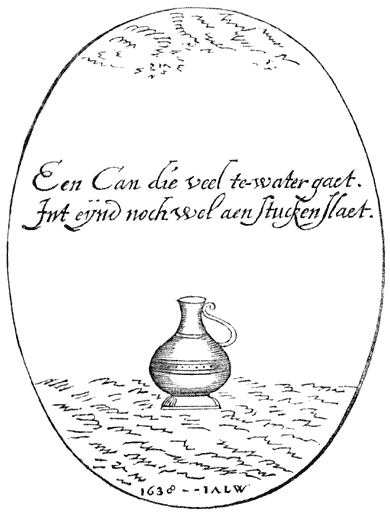 Een Can die veel te-water gaet.
Int eynd noch wel aen stucken slaet.
1638--IALW